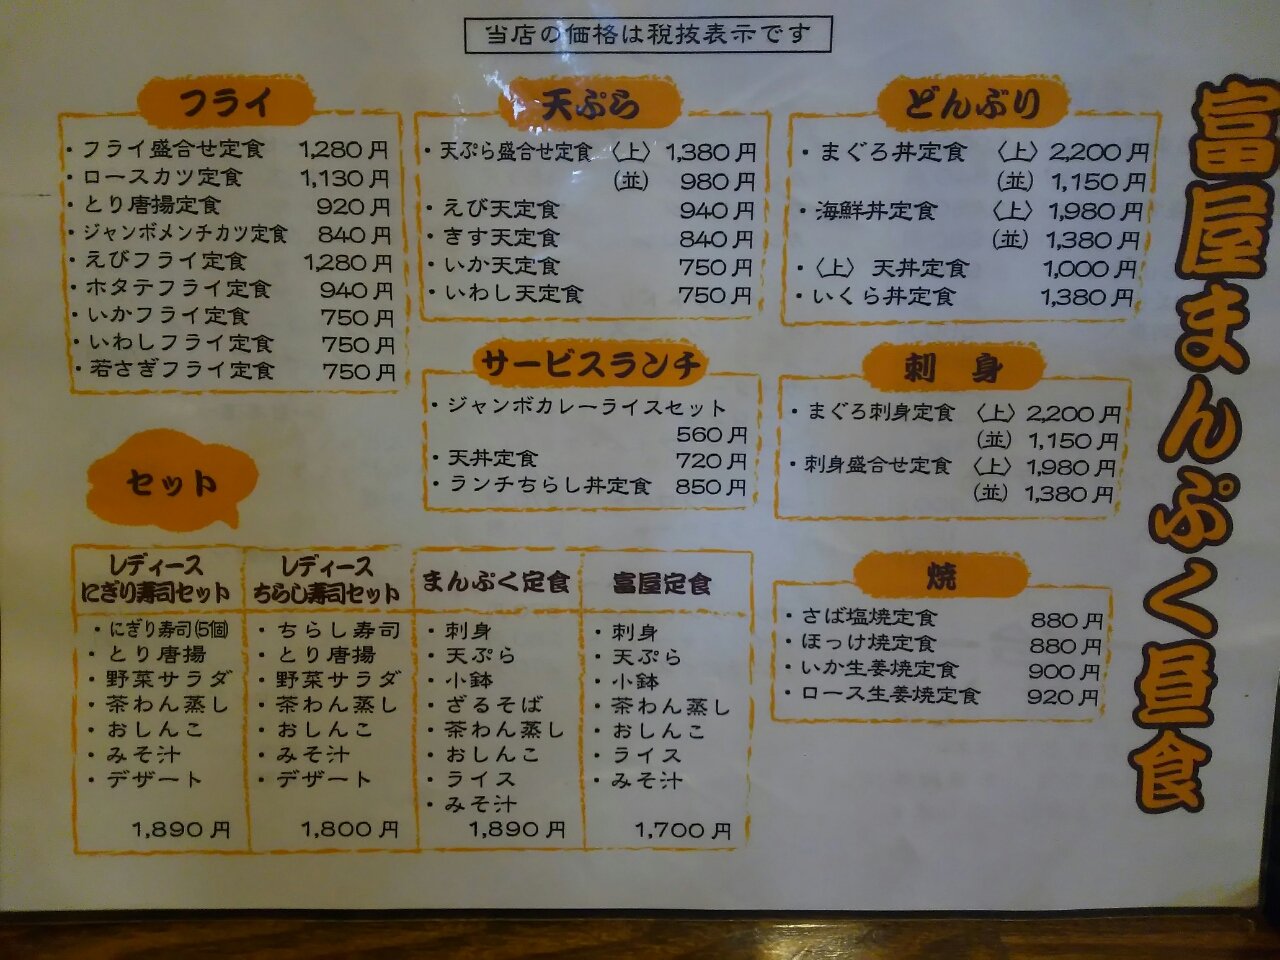 当店の価格は税抜表示です
富屋まんぷく昼食
フライ
・フライ盛合せ定食 1,280円
・ロースカツ定食 1,130円
・とり唐揚定食 920円
・ジャンボメンチカツ定食 840円
・えびフライ定食 1,280円
・ホタテフライ定食 940円
・いかフライ定食 750円
・いわしフライ定食 750円
・若さぎフライ定食 750円
天ぷら
・天ぷら盛合せ定食 〈上〉 1,380円
(並) 980円
・えび天定食 940円
・きす天定食 840円
・いか天定食 750円
・いわし天定食 750円
どんぶり
・まぐろ丼定食 〈上〉 2,200円
(並) 1,150円
・海鮮丼定食 〈上〉 1,980円
(並) 1,380円
・〈上〉 天丼定食 1,000円
・いくら丼定食 1,380円
サービスランチ
・ジャンボカレーライスセット
560円
・天丼定食 720円
・ランチちらし丼定食 850円
刺 身
・まぐろ刺身定食 〈上〉 2,200円
(並) 1,150円
・刺身盛合せ定食 〈上〉 1,980円
(並) 1,380円
焼
・さば塩焼定食 880円
・ほっけ焼定食 880円
・いか生姜焼定食 900円
・ロース生姜焼定食 920円
セット
レディース
にぎり寿司セット
・にぎり寿司(5個)
・とり唐揚
・野菜サラダ
・茶わん蒸し
・おしんこ
・みそ汁
・デザート
1,890円
レディース
ちらし寿司セット
・ちらし寿司
・とり唐揚
・野菜サラダ
・茶わん蒸し
・おしんこ
・みそ汁
・デザート
1,800円
まんぷく定食
・刺身
・天ぷら
・小鉢
・ざるそば
・茶わん蒸し
・おしんこ
・ライス
・みそ汁
1,890円
富屋定食
・刺身
・天ぷら
・小鉢
・茶わん蒸し
・おしんこ
・ライス
・みそ汁
1,700円